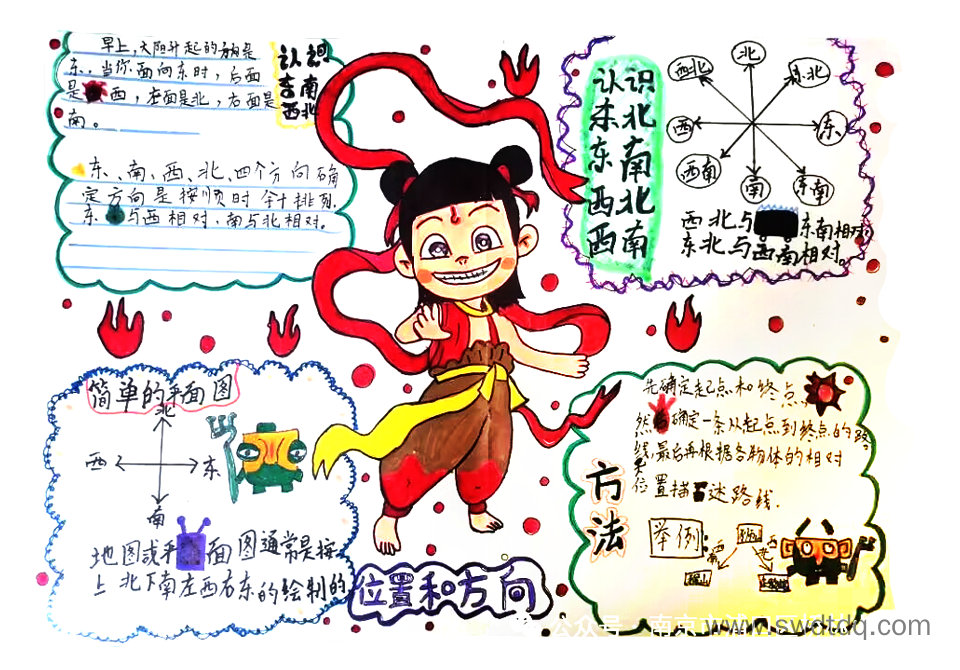 早上，太阳升起的方向是
东，当你面向东时，后面
是西，左面是北，右面是
南。
认识
东南
西北
东、南、西、北、四个方向确
定方向是按顺时针排列.
东与西相对、南与北相对。
认识
东北
东南
西北
西南
北
西北
东北
西
东
西南
南
东南
西北与东南相对。
东北与西南相对。
简单的平面图
北
西
东
南
地图或平面图通常是按
上北下南左西右东的绘制的
先确定起点和终点,
然确定一条从起点到终点的路
线,最后再根据各物体的相对
位置描述路线.
方法
举例:
位置和方向
公众号
南京市浦
www.swdtdq.com